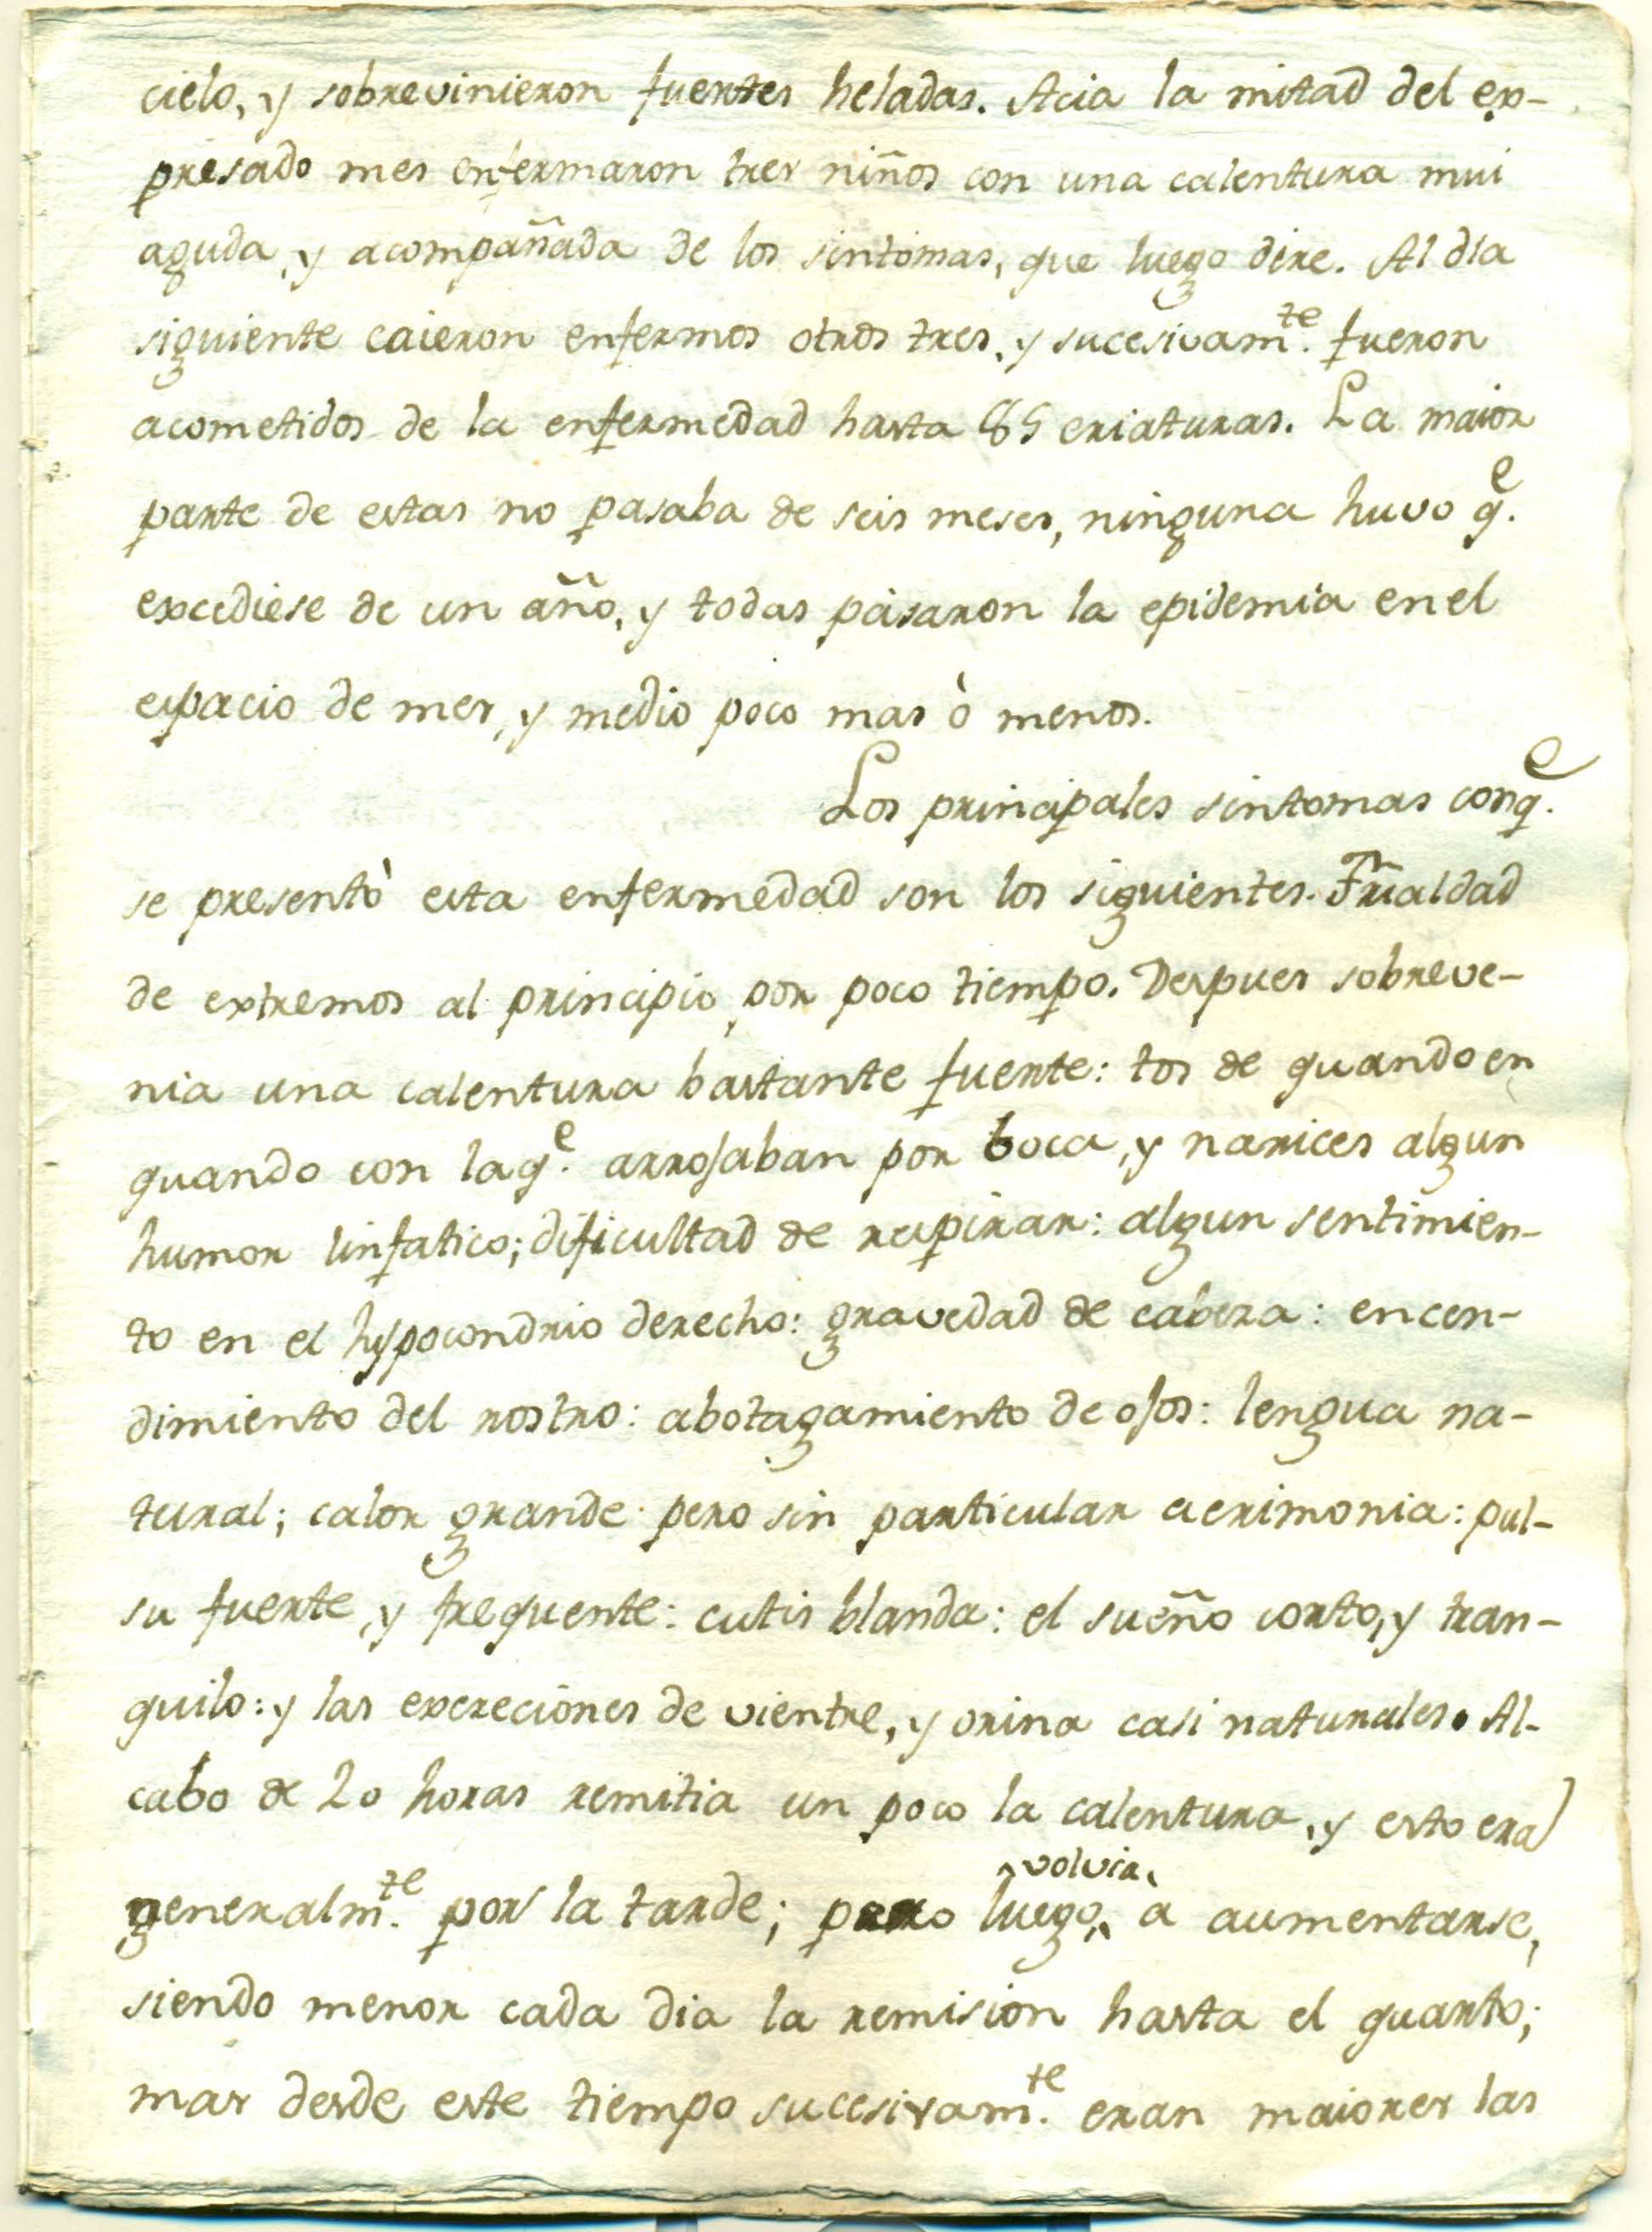 cielo, y sobrevinieron fuertes heladas. Acia la mitad del ex-
presado mes enfermaron tres niños con una calentura mui
aguda, y acompañada de los sintomas, que luego dire. Al dia
siguiente caieron enfermos otros tres, y sucesivam.te fueron
acometidos de la enfermedad hasta 85 criaturas. La maior
parte de estas no pasaba de seis meses, ninguna huvo q.e
excediese de un año, y todas pasaron la epidemia en el
espacio de mes, y medio poco mas ò menos.
Los principales sintomas con q.e
se presentò esta enfermedad son los siguientes. Frialdad
de extremos al principio por poco tiempo. Despues sobreve-
nia una calentura bastante fuerte: tos de quando en
quando con la q.e arrojaban por boca, y narices algun
humor linfatico; dificultad de respirar: algun sentimien-
to en el hypocondrio derecho: gravedad de cabeza: encen-
dimiento del rostro: abotagamiento de ojos: lengua na-
tural; calor grande pero sin particular acrimonia: pul-
su fuerte, y frequente: cutis blanda: el sueño corto, y tran-
quilo: y las excreciones de vientre, y orina casi naturales. Al
cabo de 20 horas remitia un poco la calentura, y esto era
generalm.te por la tarde; pero luego volvia a aumentarse,
siendo menor cada dia la remision hasta el quarto;
mas desde este tiempo sucesivam.te eran maiores las